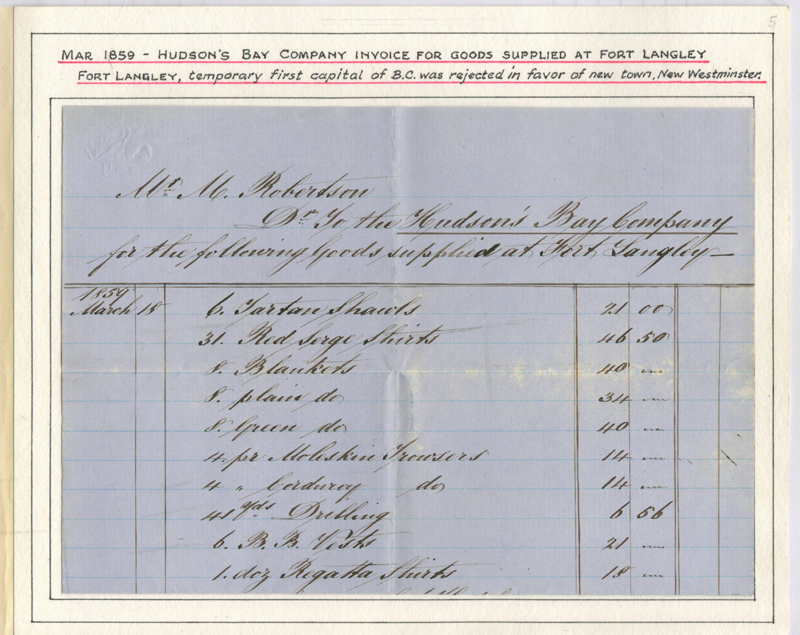 5
MAR 1859 - HUDSON'S BAY COMPANY INVOICE FOR GOODS SUPPLIED AT FORT LANGLEY
FORT LANGLEY, temporary first capital of B.C. was rejected in favor of new town, New Westminster.
Mr. M. Robertson
Dr. To the Hudson's Bay Company
for the following Goods supplied at Fort Langley—
1859
March 18 6. Tartan Shawls 21 00
31. Red Serge Shirts 46 50
8. Blankets 40 "
8. plain do 34 "
8. Green do 40 "
4 pr Moleskin Trowsers 14 "
4 " Corduroy do 14 "
41 yds Drilling 6 56
6. B. B. Vests 21 "
1. doz Regatta Shirts 18 "